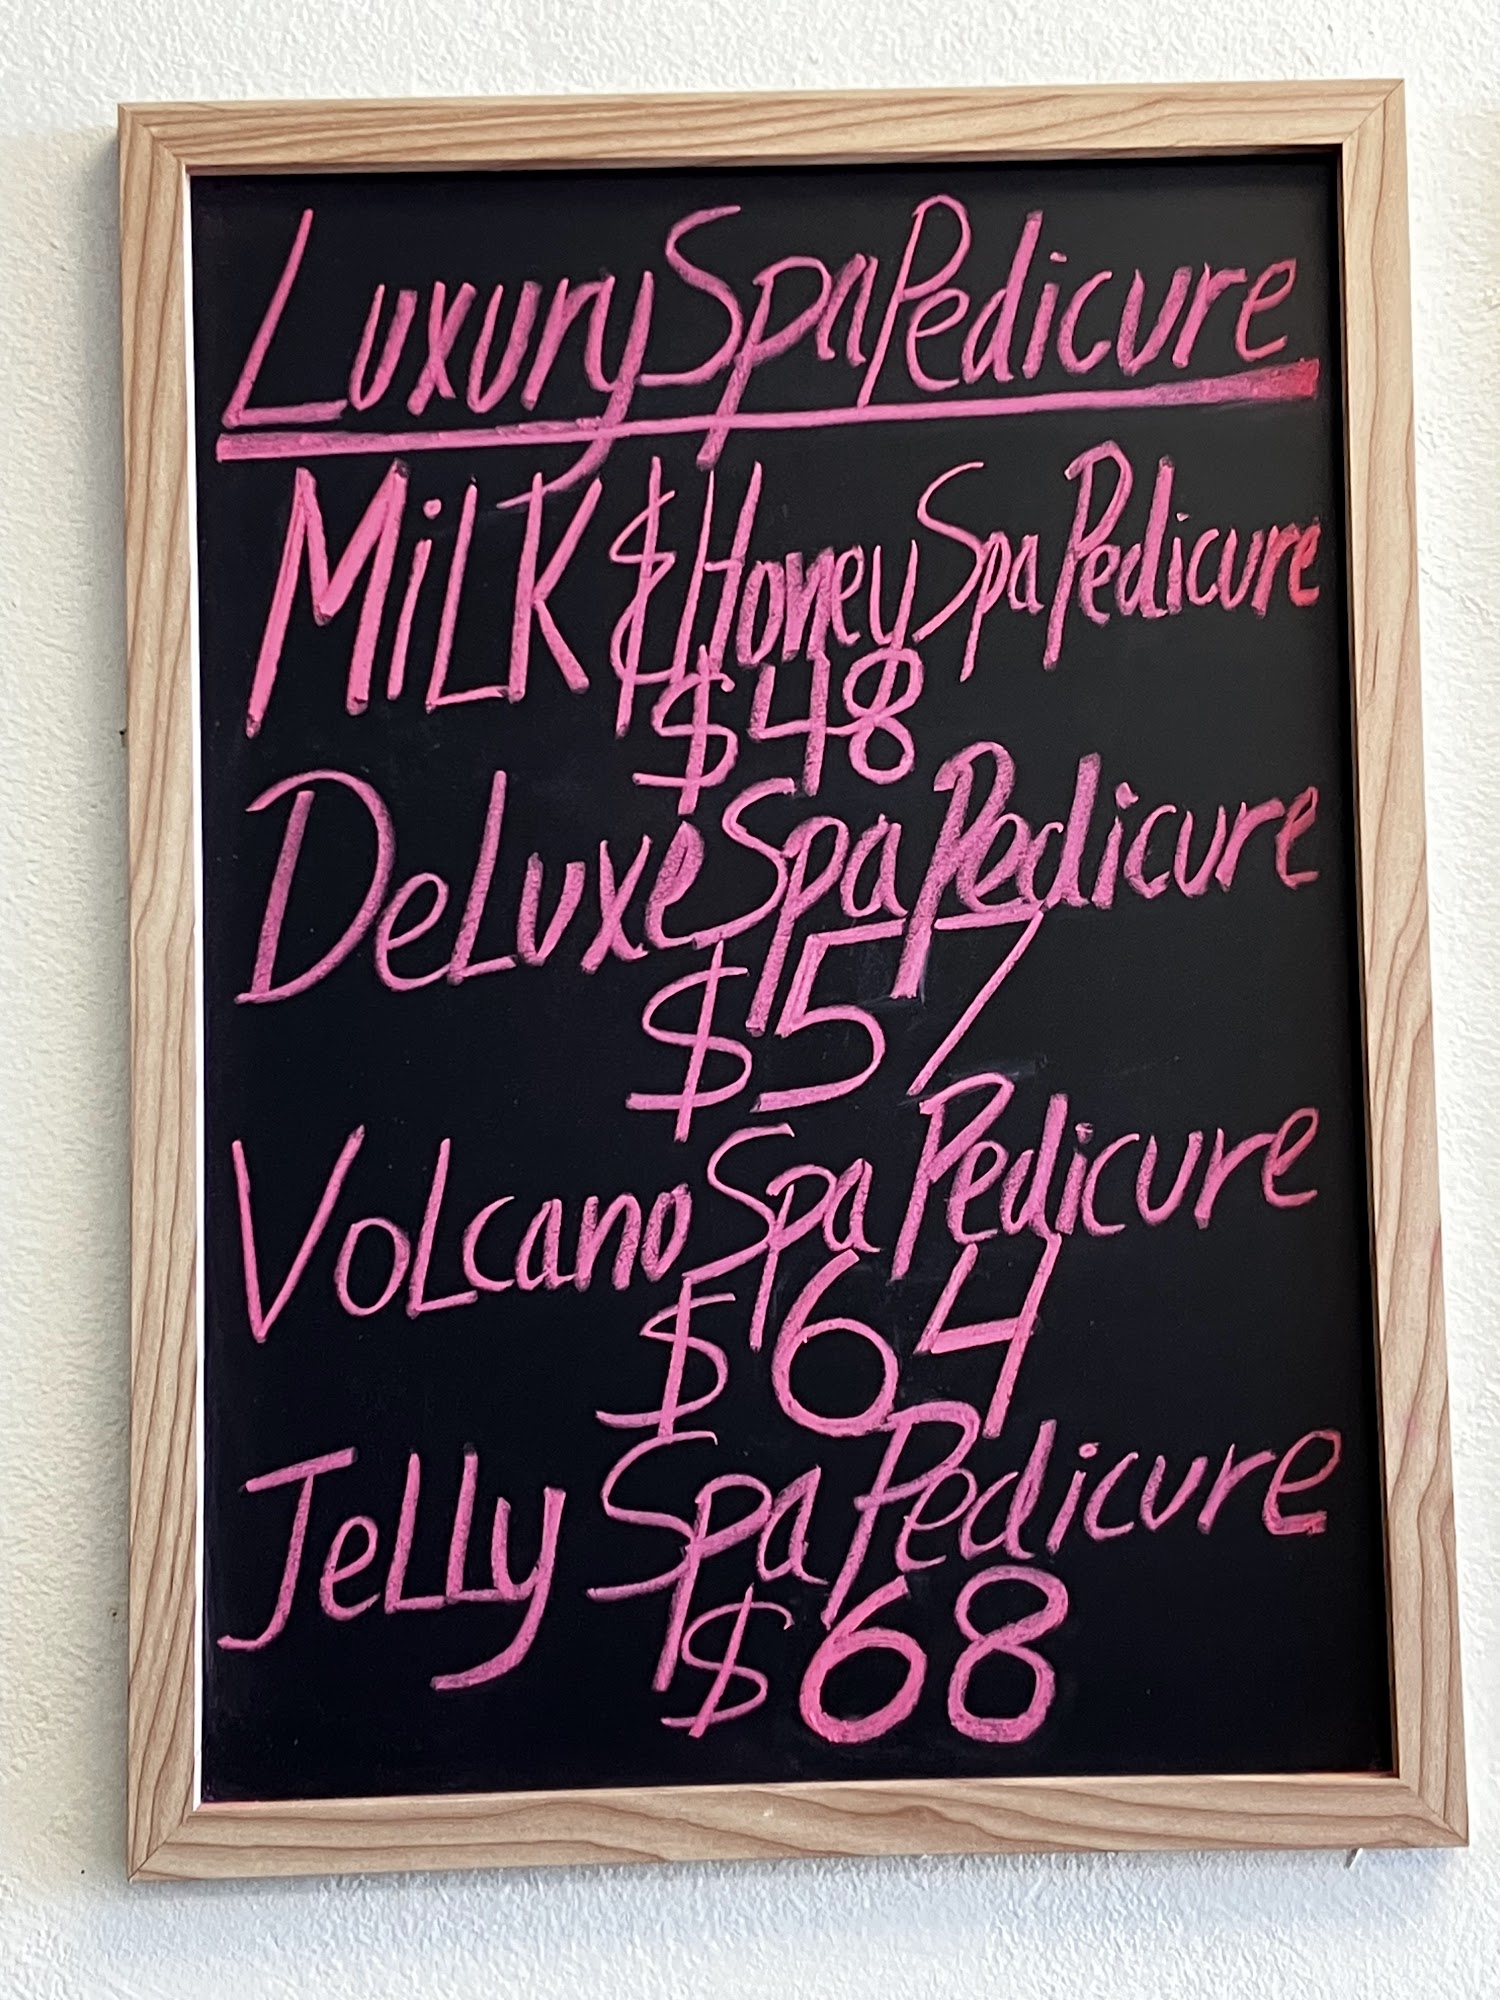 Luxury Spa Pedicure
MiLK & Honey Spa Pedicure
$48
DeLuxe Spa Pedicure
$57
VoLcano Spa Pedicure
$64
JeLLy Spa Pedicure
$68